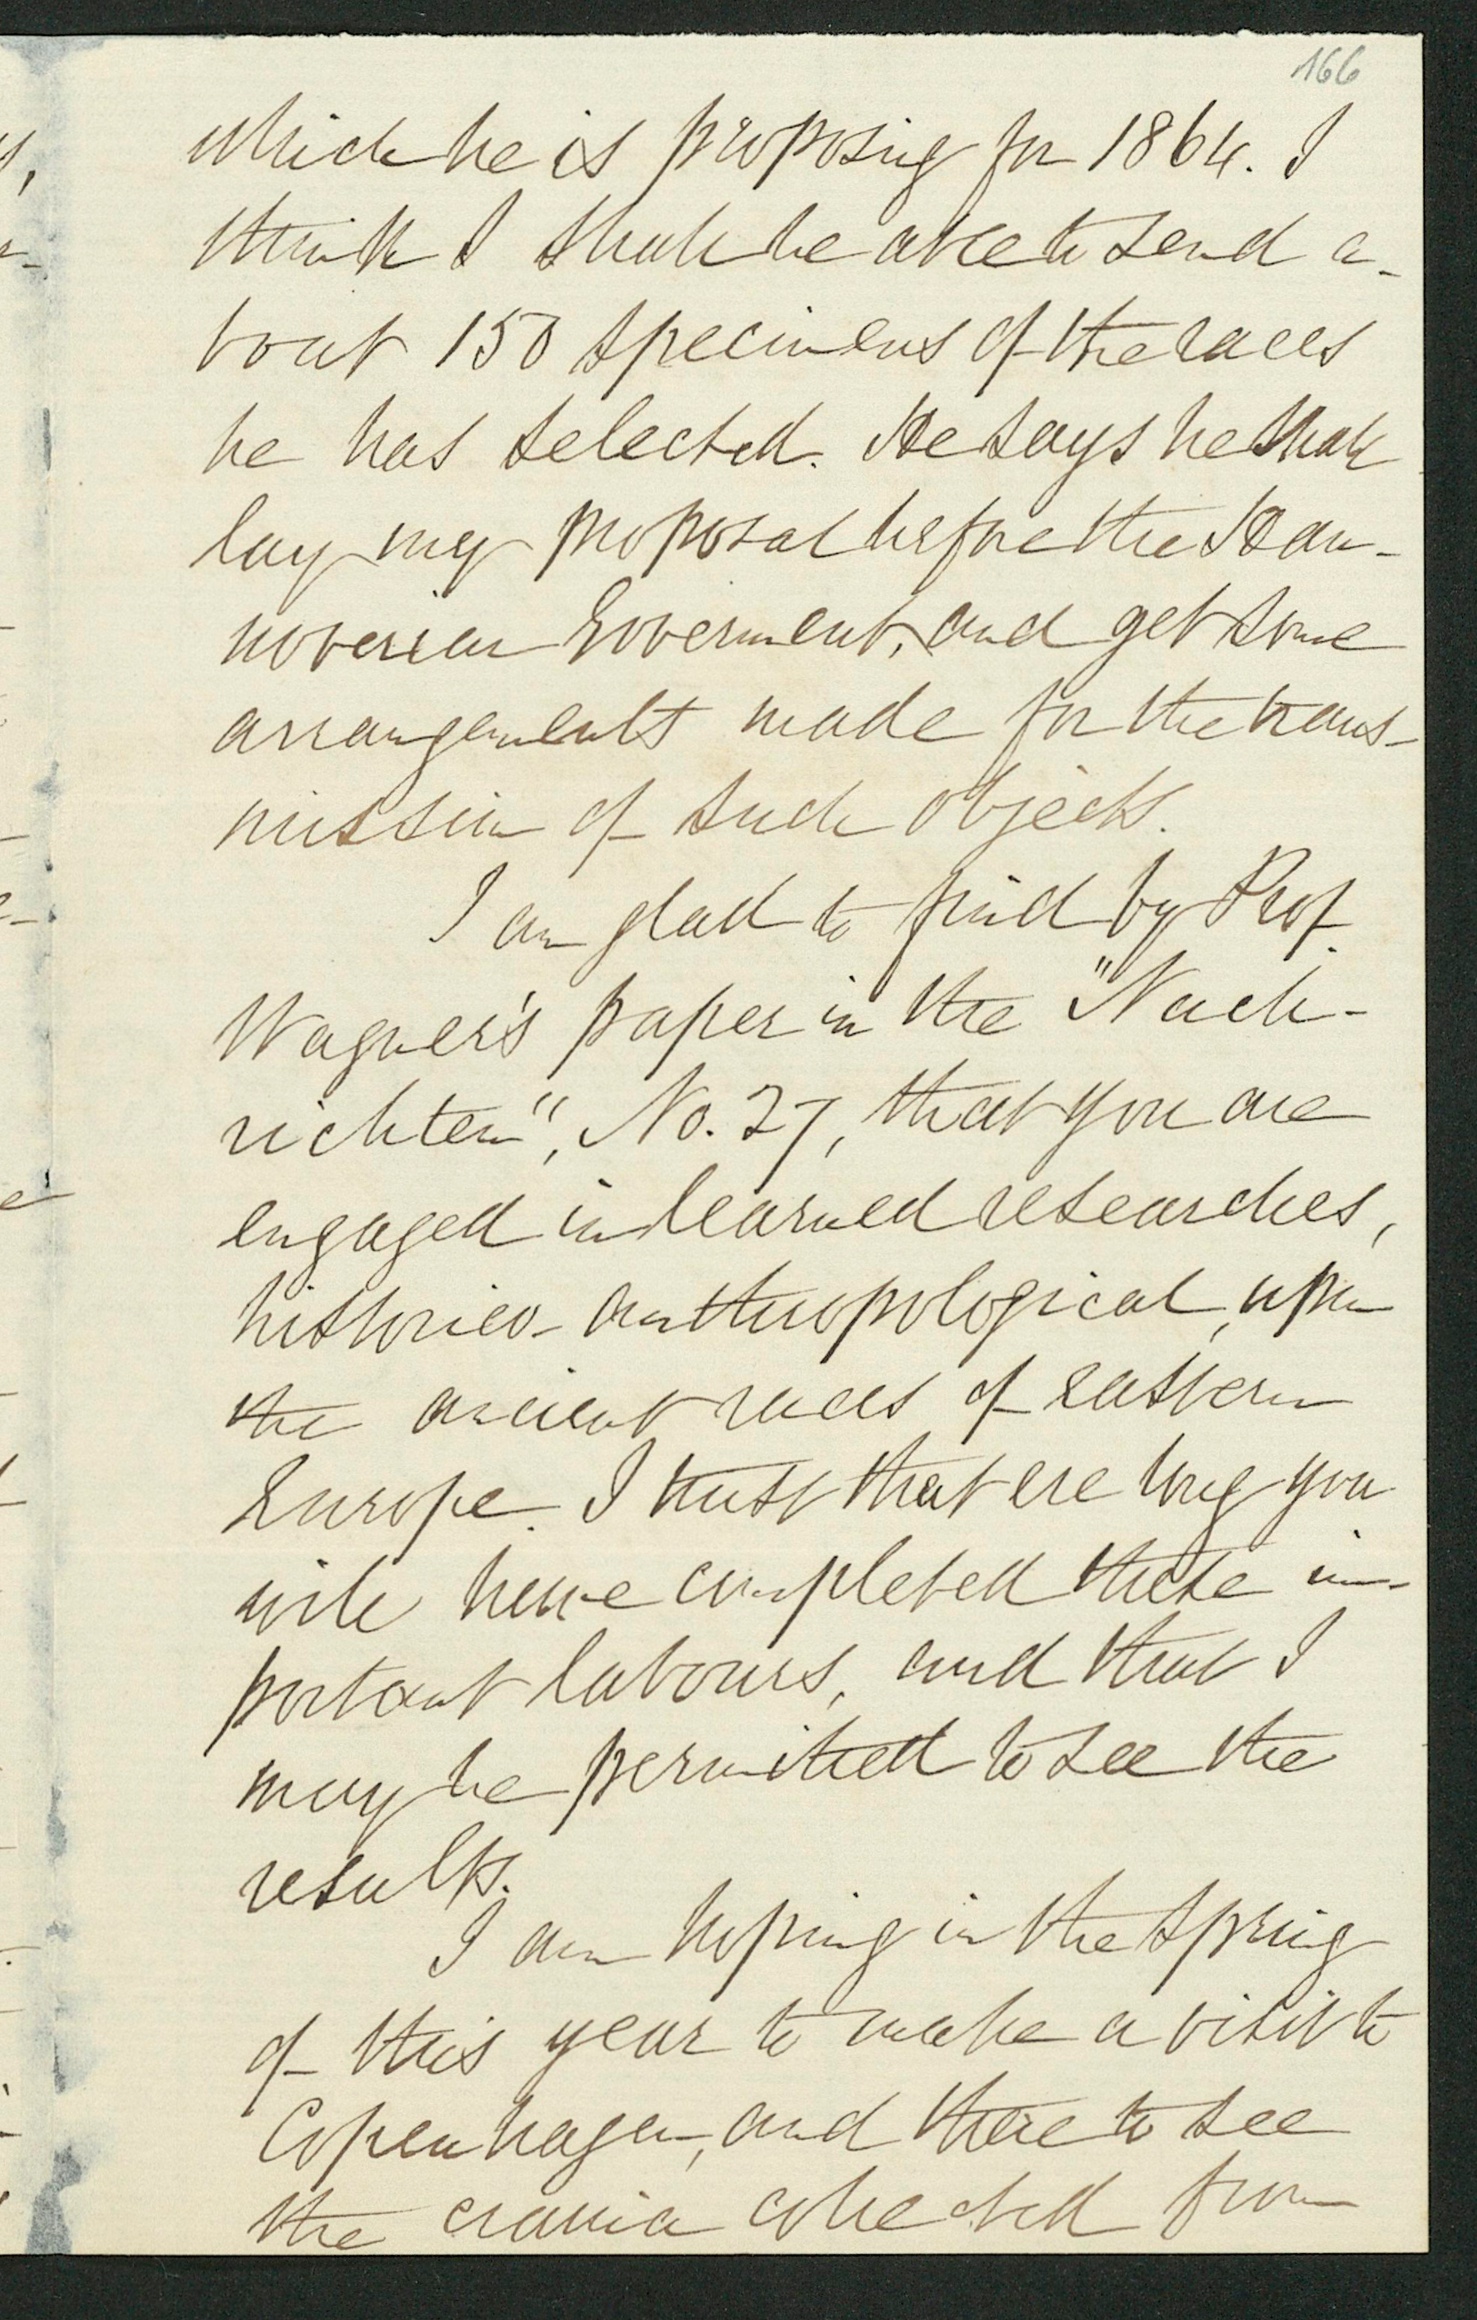 166
which he is proposing for 1864. I
think I shall be able to send a-
bout 150 specimens of the races
he has selected. He says he shall
lay my proposal before the Han-
noverian Goverment, and get some
arrangements made for the trans-
mission of such objects.
I am glad to find by Prof.
Wagner's paper in the "Nach-
richten", No. 27, that you are
engaged in learned researches,
historico-anthropological, upon
the ancient races of eastern
Europe. I trust that ere long you
will have completed these im-
portant labours, and that I
may be permitted to see the
results.
I am hoping in the spring
of this year to make a visit to
Copenhagen, and there to see
the crania collected from